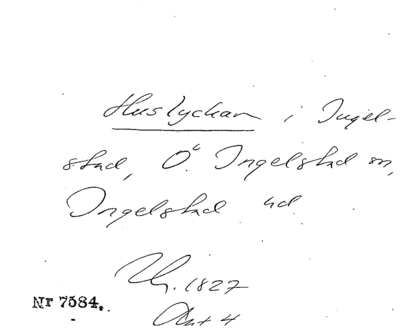 Huslyckan i Ingel-
stad, Ö. Ingelstad sn,
Ingelstad hd
1827
Nr 7584.
Akt 4